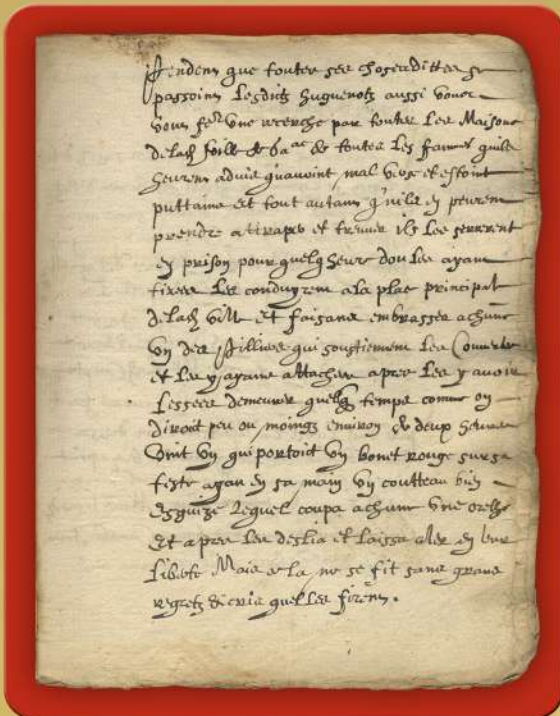 Pendent que toutes ces choses dittes se
passoint Lesdits huguenotz aussi
une recerche par toutes Les Maisons
de lad ville de & de toutes Les fames quils
heurent advis quavoint mal vescu et estoint
puttains et tout autant qu'ils en peurent
prendre atraper et treuver ils Les serrerent
en prison pour quelq heure dou Les ayant
tirees Les conduyrent a la place principal
de lad ville Et faisant embrasser achune
un des Pilliers qui soustienent Les Couverts
et Les y ayant attachees apres Les y avoir
Lessees demeurer quelq temps comme on
diroit peu ou moingz environ de deux heures
Vint un qui portoit un bonet rouge sur sa
teste ayant en sa main un coutteau bien
Esguize Lequel coupa achune une orelhe
Et apres Les deslia et laissa aler en leur
Liberte Mais cela ne se fit sans grans
regretz & cris quelles firent.